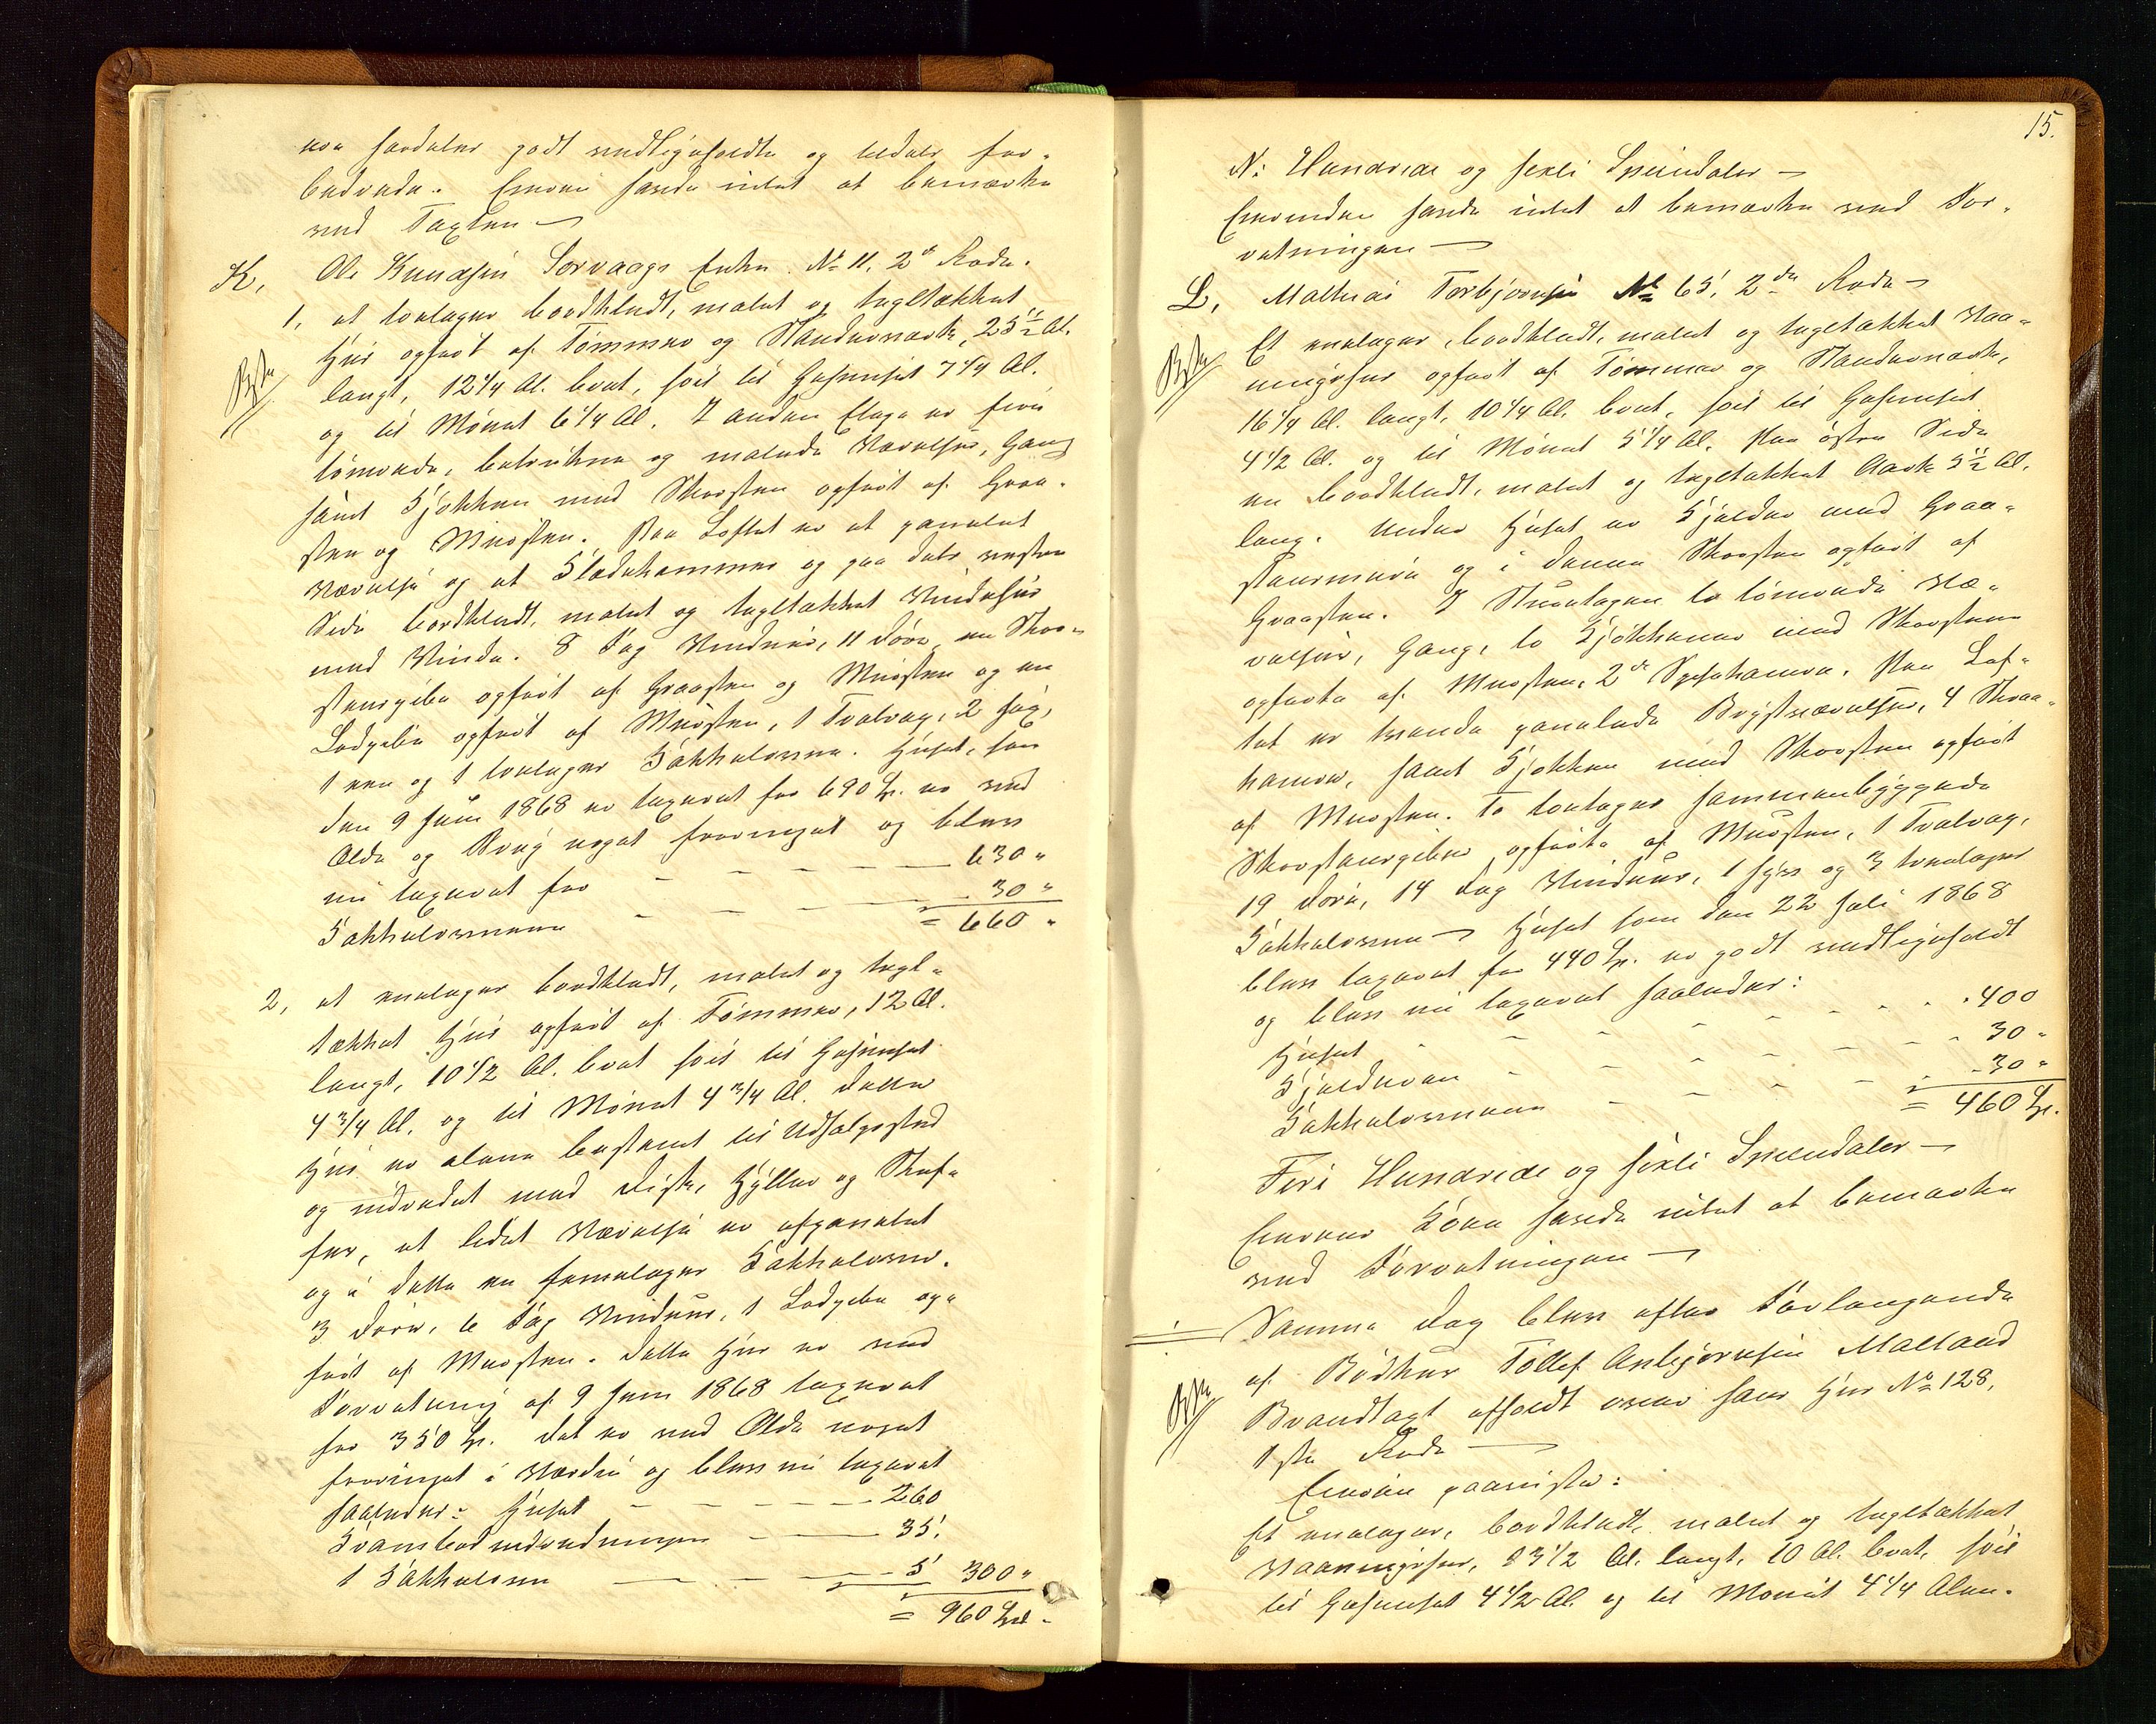 ere fremdeles godt vedligeholdte og tildels for-
bedrede. Eieren havde intet at bemærke
ved Taxten —
K, Ole Knudsens Sørvaags Enke. No 11, 2de Rode.
1, et toetages bordklædt, malet og tegltækket
Huus opført af Tømmer og Standerværk, 25 1/2 Al.
langt, 12 1/4 Al. bredt, høit til Gesimset 7 1/4 Al.
og til Mønet 6 1/4 Al. I anden Etage er fire
tømrede, betrukne og malede Værelser, Gang
samt Kjøkken med Skorsten opført af Graa-
sten og Muursten. Paa Loftet er et panelet
Værelse og et Klædekammer og paa dets vestre
Side bordklædt, malet og tegltækket Vindehuus
med Vinde. 8 Fag Vinduer, 11 Døre, en Skor-
stenspibe opført af Graasten og Muursten og en
Ladpibe opført af Muursten, 1 Tralværk, 2 sex,
1 een og 1 toetages Kakkelovne. Huset, som
den 9 Juni 1868 er taxeret for 690 Sp. er ved
Ælde og Brug noget forringet og blev
nu taxeret for — — — — — 630 "
Kakkelovnene — — — — 30 "
= 660 "
2, et eenetages bordklædt, malet og tegl-
tækket Huus opført af Tømmer, 12 Al.
langt, 10 1/2 Al. bredt høit til Gesimset
4 3/4 Al. og til Mønet 4 3/4 Al. Dette
Huus er alene bestemt til Udsalgssted
og indredet med Disk, Hylder og Skuf-
fer, et lidet Værelse er afpanelet
og i dette en femetages Kakkelovn.
3 Døre, 6 Fag Vinduer, 1 Ladpibe op-
ført af Muursten. Dette Huus er ved
Forretning af 9 Juni 1868 taxeret
for 350 Sp. Det er ved Ælde noget
forringet i Værdie og blev nu taxeret
saaledes: Huset — — — — — 260
Krambodindredningen — — — 35.
1 Kakkelovn — — — 5 300 "
= 960 Spd.
15.
Ni Hundrede og sexti Speciedaler —
Eierinden havde intet at bemærke ved For-
retningen —
L, Mathias Torbjørnsen No 65, 2den Rode —
Et eenetages, bordklædt, malet og tegltækket Vaa-
ningshuus opført af Tømmer og Standerværk,
16 1/4 Al. langt, 10 1/4 Al. bredt, høit til Gesimset
4 1/2 Al. og til Mønet 5 1/4 Al. Paa østre Side
en bordklædt, malet og tegltækket Aark 5 1/2 Al.
lang. Under Huset er Kjelder med Graa-
steensmure og i denne Skorsten opført af
Graasten. I Stueetagen to tømrede Væ-
relser, Gang, to Kjøkkener med Skorstene
opførte af Muursten, 2de Spisekamre. Paa Lof-
tet er tvende panelede Qvistværelser, 4 Skraa-
kamre, samt Kjøkken med Skorsten opført
af Muursten. To toetages sammenbyggede
Skorstenspiber opførte af Muursten, 1 Tralværk,
19 Døre, 14 Fag Vinduer, 1 fyr og 3 treetages
Kakkelovne — Huset som den 22 Juli 1868
blev taxeret for 440 Sp. er godt vedligeholdt
og blev nu taxeret saaledes:
Huset - - - - - - 400
Kjelderen - - - - - - 30 "
Kakkelovnene — — — — 30 "
= 460 Sp.
Fire Hundrede og sexti Speciedaler —
Eierens Kone havde intet at bemærke
ved Forretningen —
Samme Dag blev efter Forlangende
af Bødker Tollef Asbjørnsen Malland
Brandtaxt afholdt over hans Huus No 128,
1ste Rode —
Eieren paaviste:
Et eenetages, bordklædt, malet og tegltækket
Vaaningshuus, 23 1/2 Al. langt, 10 Al. bredt, høit
til Gesimset 4 1/2 Al. og til Mønet 4 1/4 Alen.